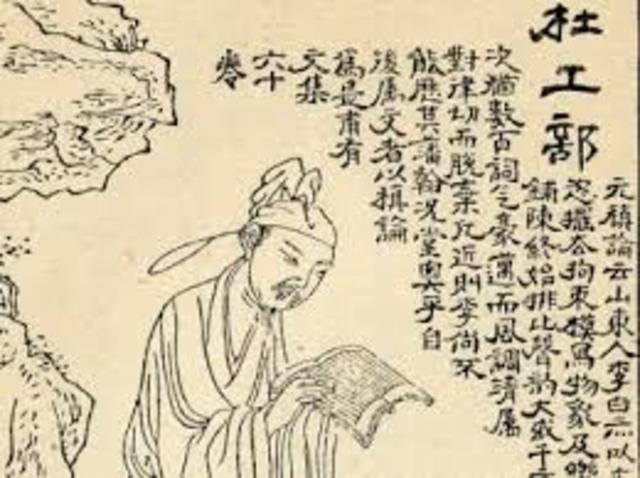 杜工部
元稹論云山東人李白亦以
恣擺去拘束模寫物象及
鋪陳終始排比聲韵大或千
次猶數百詞气豪邁而風調清屬
對律切而脫棄凡近則李尚不
能歷其藩翰況堂奧乎自
後屬文者以稹論
爲是甫有
文集
六十
卷